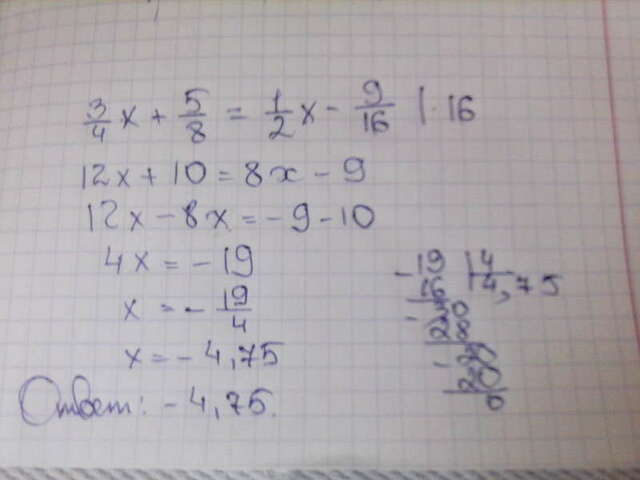 3/4 x + 5/8 = 1/2 x - 9/16 | · 16
12x + 10 = 8x - 9
12x - 8x = -9 - 10
4x = -19
x = - 19/4
x = - 4,75
Ответ: - 4,75.
- 19 | 4
16 | 4,75
30
- 28
- 20
20
0